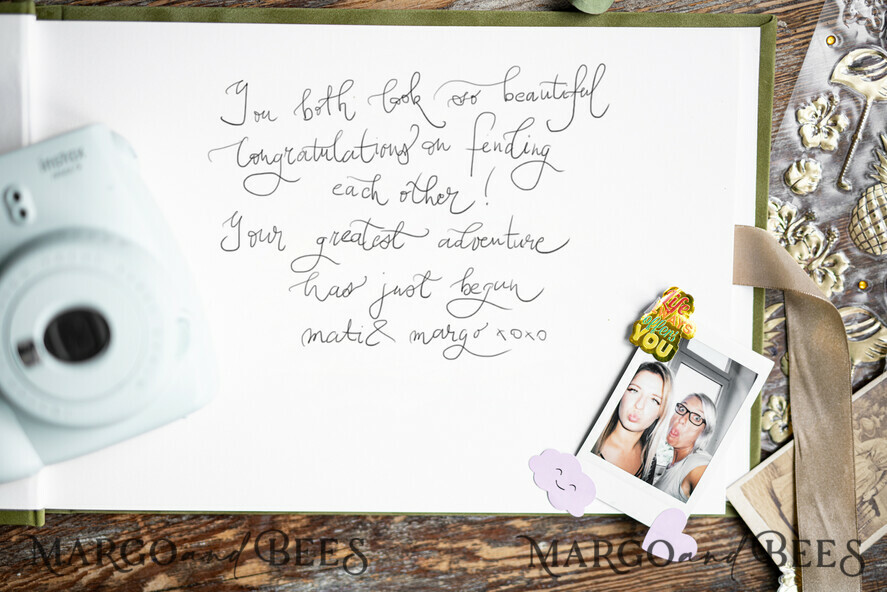 You both look so beautiful
Congratulations on finding
each other!
Your greatest adventure
has just begun
mati & margo xoxo
instax
life
ALWAYS
offers
YOU
MARGO and BEES
MARGO and BEES